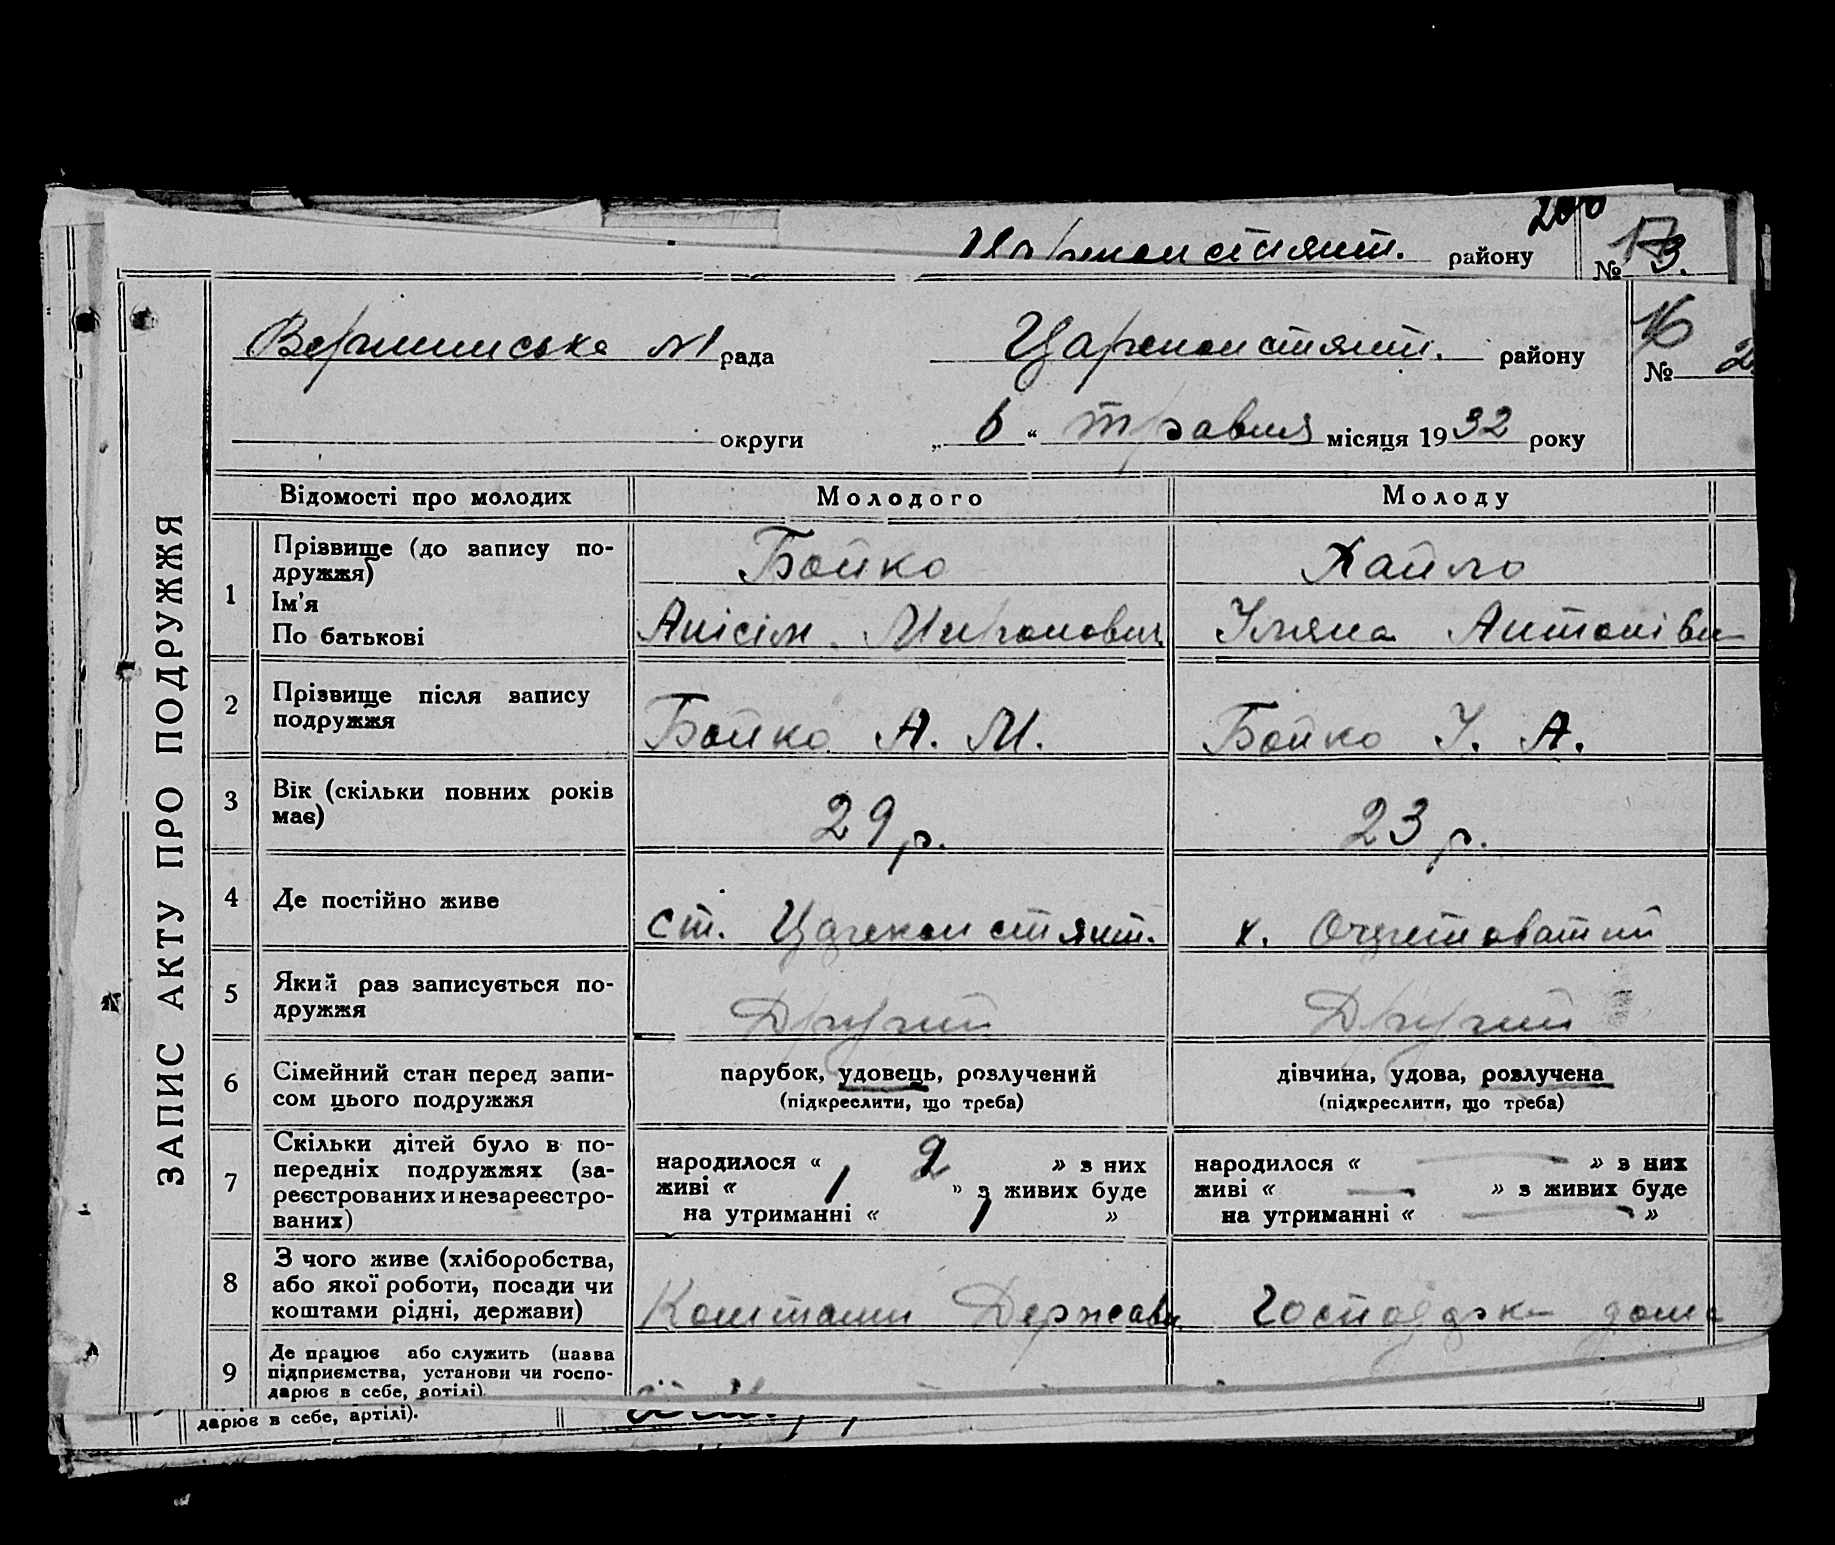 200
районУ № 13.
ЗАПИС АКТУ ПРО ПОДРУЖЖЯ
№1 рада Царекон стянт. району 16 № 2
округи „ 6 “ травня місяця 1932 року
Відомості про молодих Молодого Молоду
1 Прізвище (до запису по-
дружжя) Бойко Хайло
Ім'я
По батькові Анісім. Миронович Уляна Антонівн
2 Прізвище після запису
подружжя Бойко А. М. Бойко У. А.
3 Вік (скільки повних років
має) 29 р. 23 р.
4 Де постійно живе ст. Царекон стянт. х. Очеретоватий
5 Який раз записується по-
дружжя Другий Другий
6 Сімейний стан перед запи-
сом цього подружжя
парубок, удовець, розлучений
(підкреслити, що треба)
дівчина, удова, розлучена
(підкреслити, що треба)
7 Скільки дітей було в по-
передніх подружжях (за-
реєстрованих и незареєстро-
ваних)
народилося « 2 » з них
живі « 1 » з живих буде
на утриманні « 1 »
народилося « — » з них
живі « — » з живих буде
на утриманні « — »
8 З чого живе (хліборобства,
або якої роботи, посади чи
коштами рідні, держави) Коштами Держави дома
9 Де працює або служить (назва
підприємства, установи чи госпо-
дарює в себе, артілі)
дарює в себе, артілі).